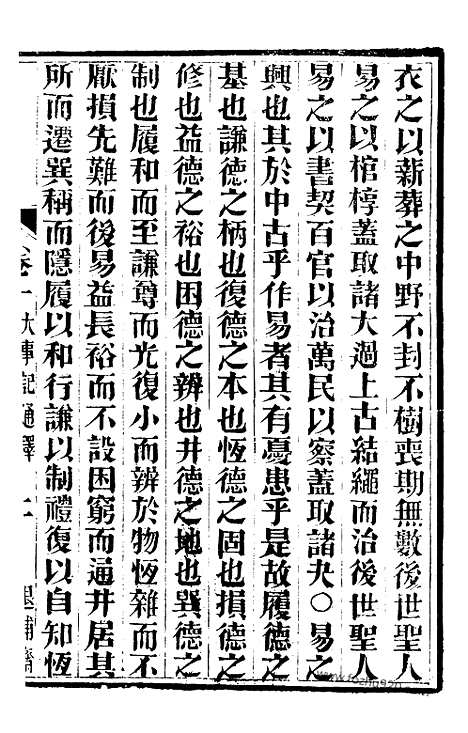 衣之以薪葬之中野不封不樹喪期無數後世聖人
易之以棺椁蓋取諸大過上古結繩而治後世聖人
易之以書契百官以治萬民以察蓋取諸夬○易之
興也其於中古乎作易者其有憂患乎是故履德之
基也謙德之柄也復德之本也恆德之固也損德之
修也益德之裕也困德之辨也井德之地也巽德之
制也履和而至謙尊而光復小而辨於物恆雜而不
厭損先難而後易益長裕而不設困窮而通井居其
所而遷巽稱而隱履以和行謙以制禮復以自知恆
卷一 大事記通釋 上 退補齋